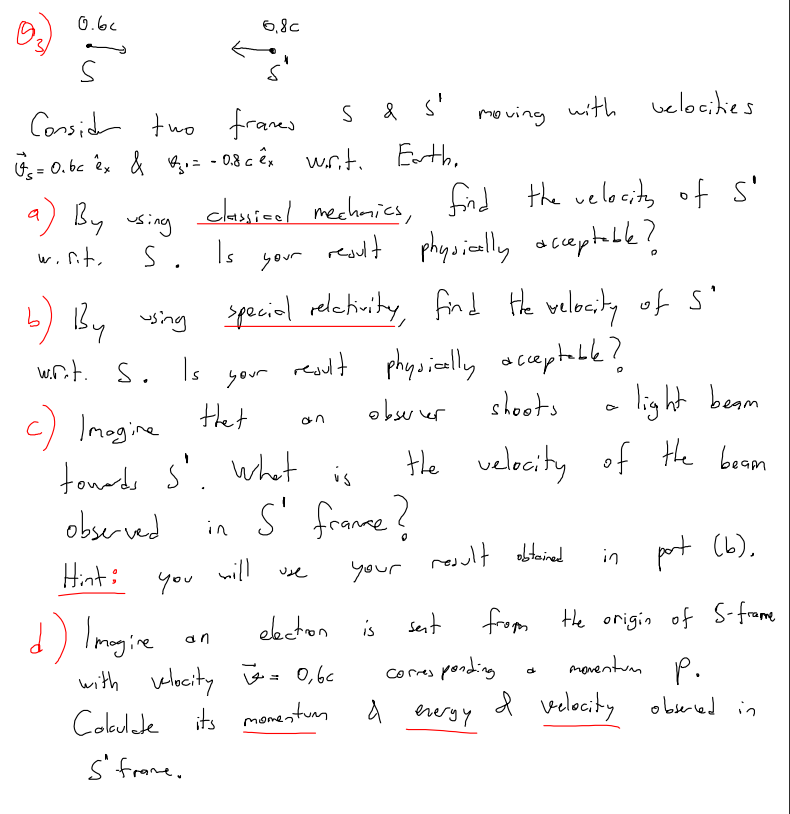 Q3) 0.6c 0,8c
S S'
Consider two frames S & S' moving with velocities
v⃗s = 0.6c êx & v⃗s' = - 0.8c êx w.r.t. Earth.
a) By using classical mechanics, find the velocity of S'
w.r.t. S. Is your result physically acceptable?
b) By using special relativity, find the velocity of S'
w.r.t. S. Is your result physically acceptable?
c) Imagine that an observer shoots a light beam
towards S'. What is the velocity of the beam
observed in S' frame?
Hint: you will use your result obtained in part (b).
d) Imagine an electron is sent from the origin of S-frame
with velocity v⃗ = 0,6c corresponding a momentum p.
Calculate its momentum & energy & velocity observed in
S' frame.